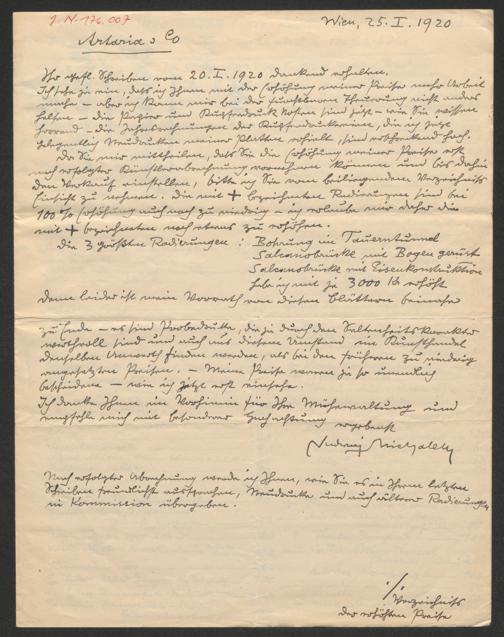 J.N. 176.007
Wien, 25. I. 1920
Artaria & Co
Ihr gefl. Schreiben vom 20. I. 1920 dankend erhalten.
Ich sehe ja ein, dass ich Ihnen mit der Erhöhung meiner Preise mehr Arbeit
mache – aber ich kann mir bei der furchtbaren Theuerung nicht anders
helfen – die Papier und Kupferdruck Kosten sind jetzt – wie Sie wissen
horrend – die Jahresrechnungen der Kupferdruckereien, die ich jetzt
gelegentlich Neudrucken meiner Platten erhielt, sind erschreckend hoch.
Da Sie mir mittheilen, dass Sie die Erhöhung meiner Preise erst
nach erfolgter Künstlerabrechnung vornehmen können und bis dahin
den Verkauf einstellen, bitte ich Sie vom beiliegenden Verzeichniss
Einsicht zu nehmen. Die mit + bezeichneten Radirungen sind bei
100 % Erhöhung auch noch zu niedrig – ich erlaube mir daher die
mit + bezeichneten noch etwas zu erhöhen.
Die 3 größten Radirungen : Bohrung im Tauerntunnel
Salcanobrücke mit Bogengerüst
Salcanobrücke mit Eisenkonstruktion
habe ich mit je 3000 K erhöht
denn leider ist mein Vorrath von diesen Blättern beinahe
zu Ende – es sind Probedrucke, die ja durch den Seltenheitskarakter
werthvoll sind und auch aus diesem Umstand im Kunsthandel
denselben Umwerth finden werden, als bei den früheren zu niedrig
angesetzten Preisen. – Meine Preise waren ja so ziemlich
bescheiden – wie ich jetzt erst einsehe.
Ich danke Ihnen im Vorhinein für Ihre Mühewaltung und
empfehle mich mit besonderer Hochachtung ergebenst
Ludwig Michalek
Nach erfolgter Abrechnung werde ich Ihnen, wie Sie es in Ihrem letzten
Schreiben freundlichst aussprechen, Neudrucke und auch ältere Radierungen
in Kommission übergeben.
./. Verzeichniss
der erhöhten Preise